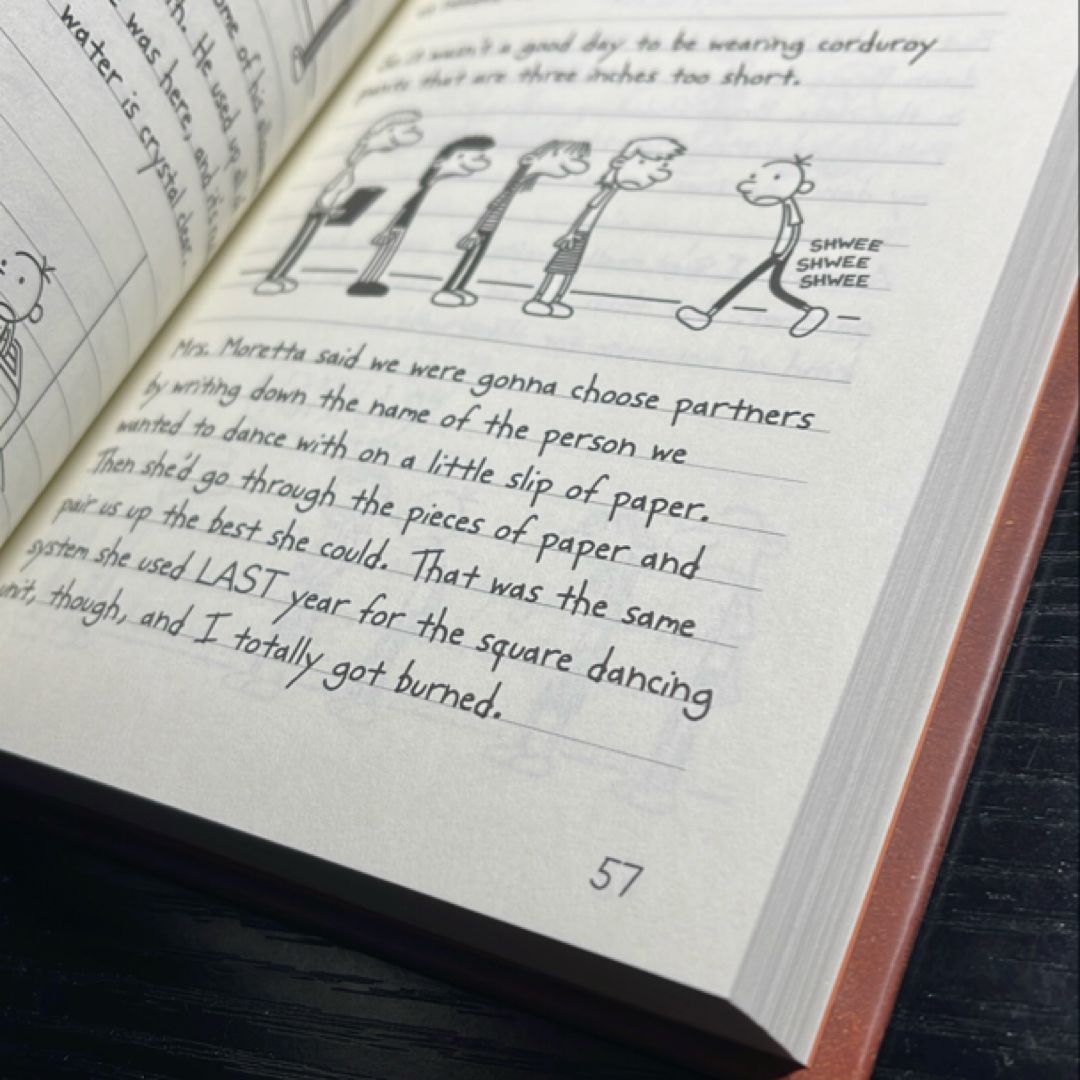 ome of his
h. He used up all
was here, and it's
water is crystal clear.
So it wasn't a good day to be wearing corduroy
pants that are three inches too short.
SHWEE
SHWEE
SHWEE
Mrs. Moretta said we were gonna choose partners
by writing down the name of the person we
wanted to dance with on a little slip of paper.
Then she'd go through the pieces of paper and
pair us up the best she could. That was the same
system she used LAST year for the square dancing
unit, though, and I totally got burned.
57